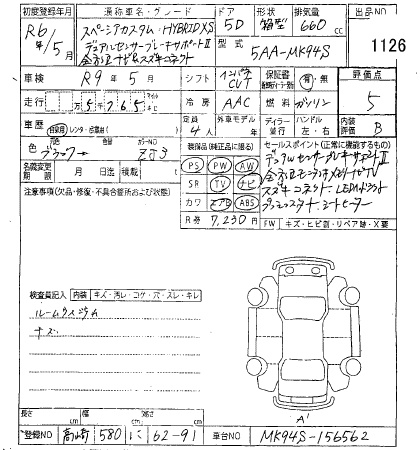 初度登録年月 通称車名・グレード ドア 形状 排気量 出品NO
R6年/5月 スペーシアカスタム・HYBRID XS 5D 箱型 660cc
デュアルセンサーブレーキサポートⅡ 型式 5AA-MK94S 1126
全方位ナビ&スズキコネクト
車検 R9年5月 シフト インパネCVT 保証書 有・無 評価点
走行 万5千765 冷房 AAC 燃料 ガソリン 5
車歴 自家用・レンタ・ 定員 4人 外車モデル ディーラー・並行 ハンドル 左・右 内装評価 B
色 ブラック カラーNO ZJ3 装備品(純正品に限る) セールスポイント(正常に機能するもの)
名義変更期限 月 日 積載 t PS PW AW デュアルセンサーブレーキサポートⅡ
注意事項(欠品・修復・不具合箇所および状態) SR TV ナビ 全方位モニター
カワ エアB ABS スズキコネクト LED
R券 7,230円 シートヒーター
FW キズ・ヒビ割・リペア跡・X要
検査員記入 内装 キズ・汚レ・コゲ・穴・スレ・キレ
ルームウスヨゴレ
キズ
A1
長さ cm 幅 cm 高さ cm
登録NO 高崎 580 に 62-91 車台NO MK94S-156562